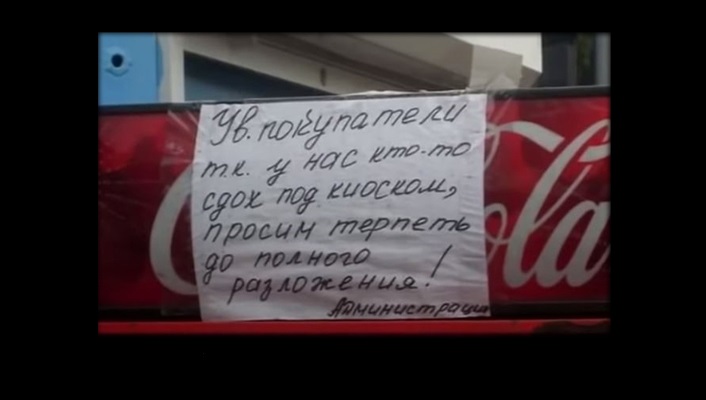 Ув. покупатели
т.к. у нас кто-то
сдох под киоском,
просим терпеть
до полного
разложения!
Администрация
Cola